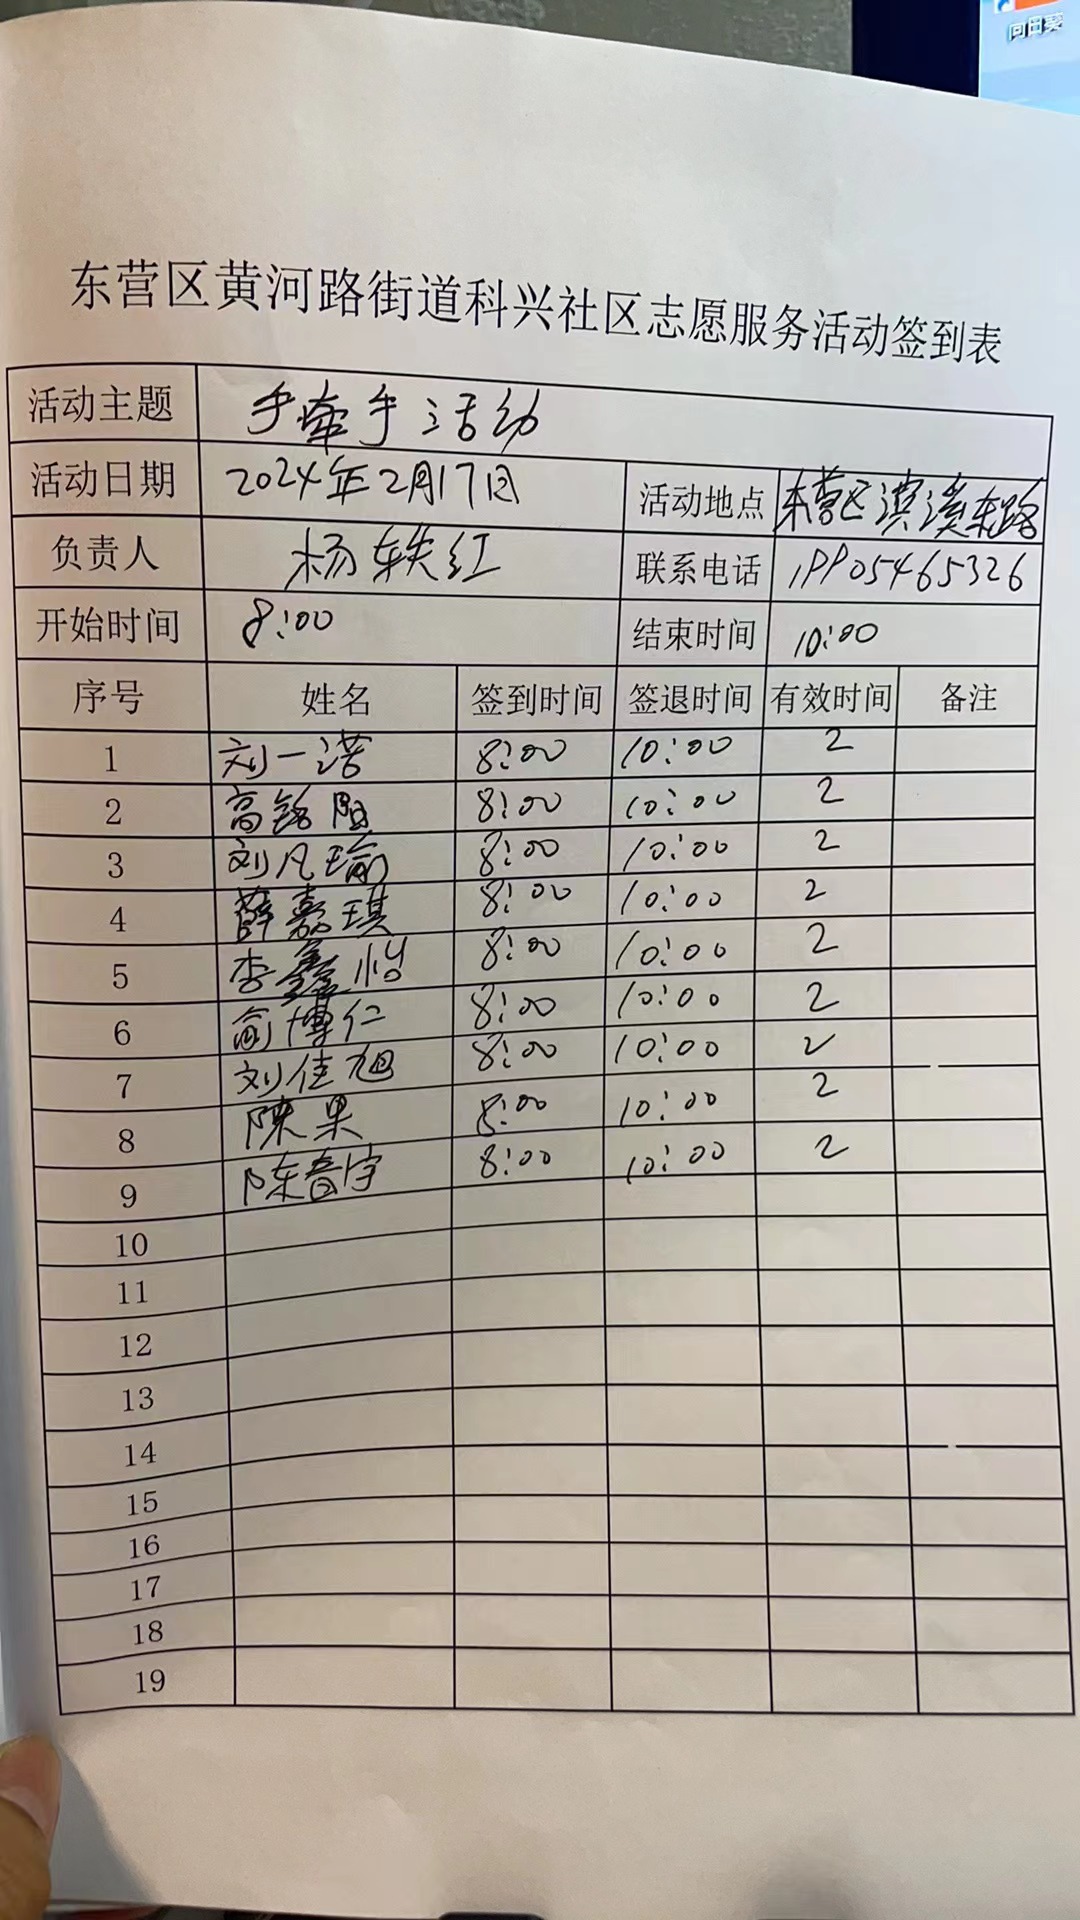 向日葵
东营区黄河路街道科兴社区志愿服务活动签到表
活动主题 手牵手活动
活动日期 2024年2月17日 活动地点 东营区淇溪东路
负责人 杨轶红 联系电话 1PP05465326
开始时间 8:00 结束时间 10:00
序号 姓名 签到时间 签退时间 有效时间 备注
1 刘一诺 8:00 10:00 2
2 高铭阳 8:00 10:00 2
3 刘凡瑜 8:00 10:00 2
4 薛嘉琪 8:00 10:00 2
5 李鑫怡 8:00 10:00 2
6 俞博仁 8:00 10:00 2
7 刘佳旭 8:00 10:00 2
8 陳果 8:00 10:00 2
9 陈音宇 8:00 10:00 2
10
11
12
13
14
15
16
17
18
19